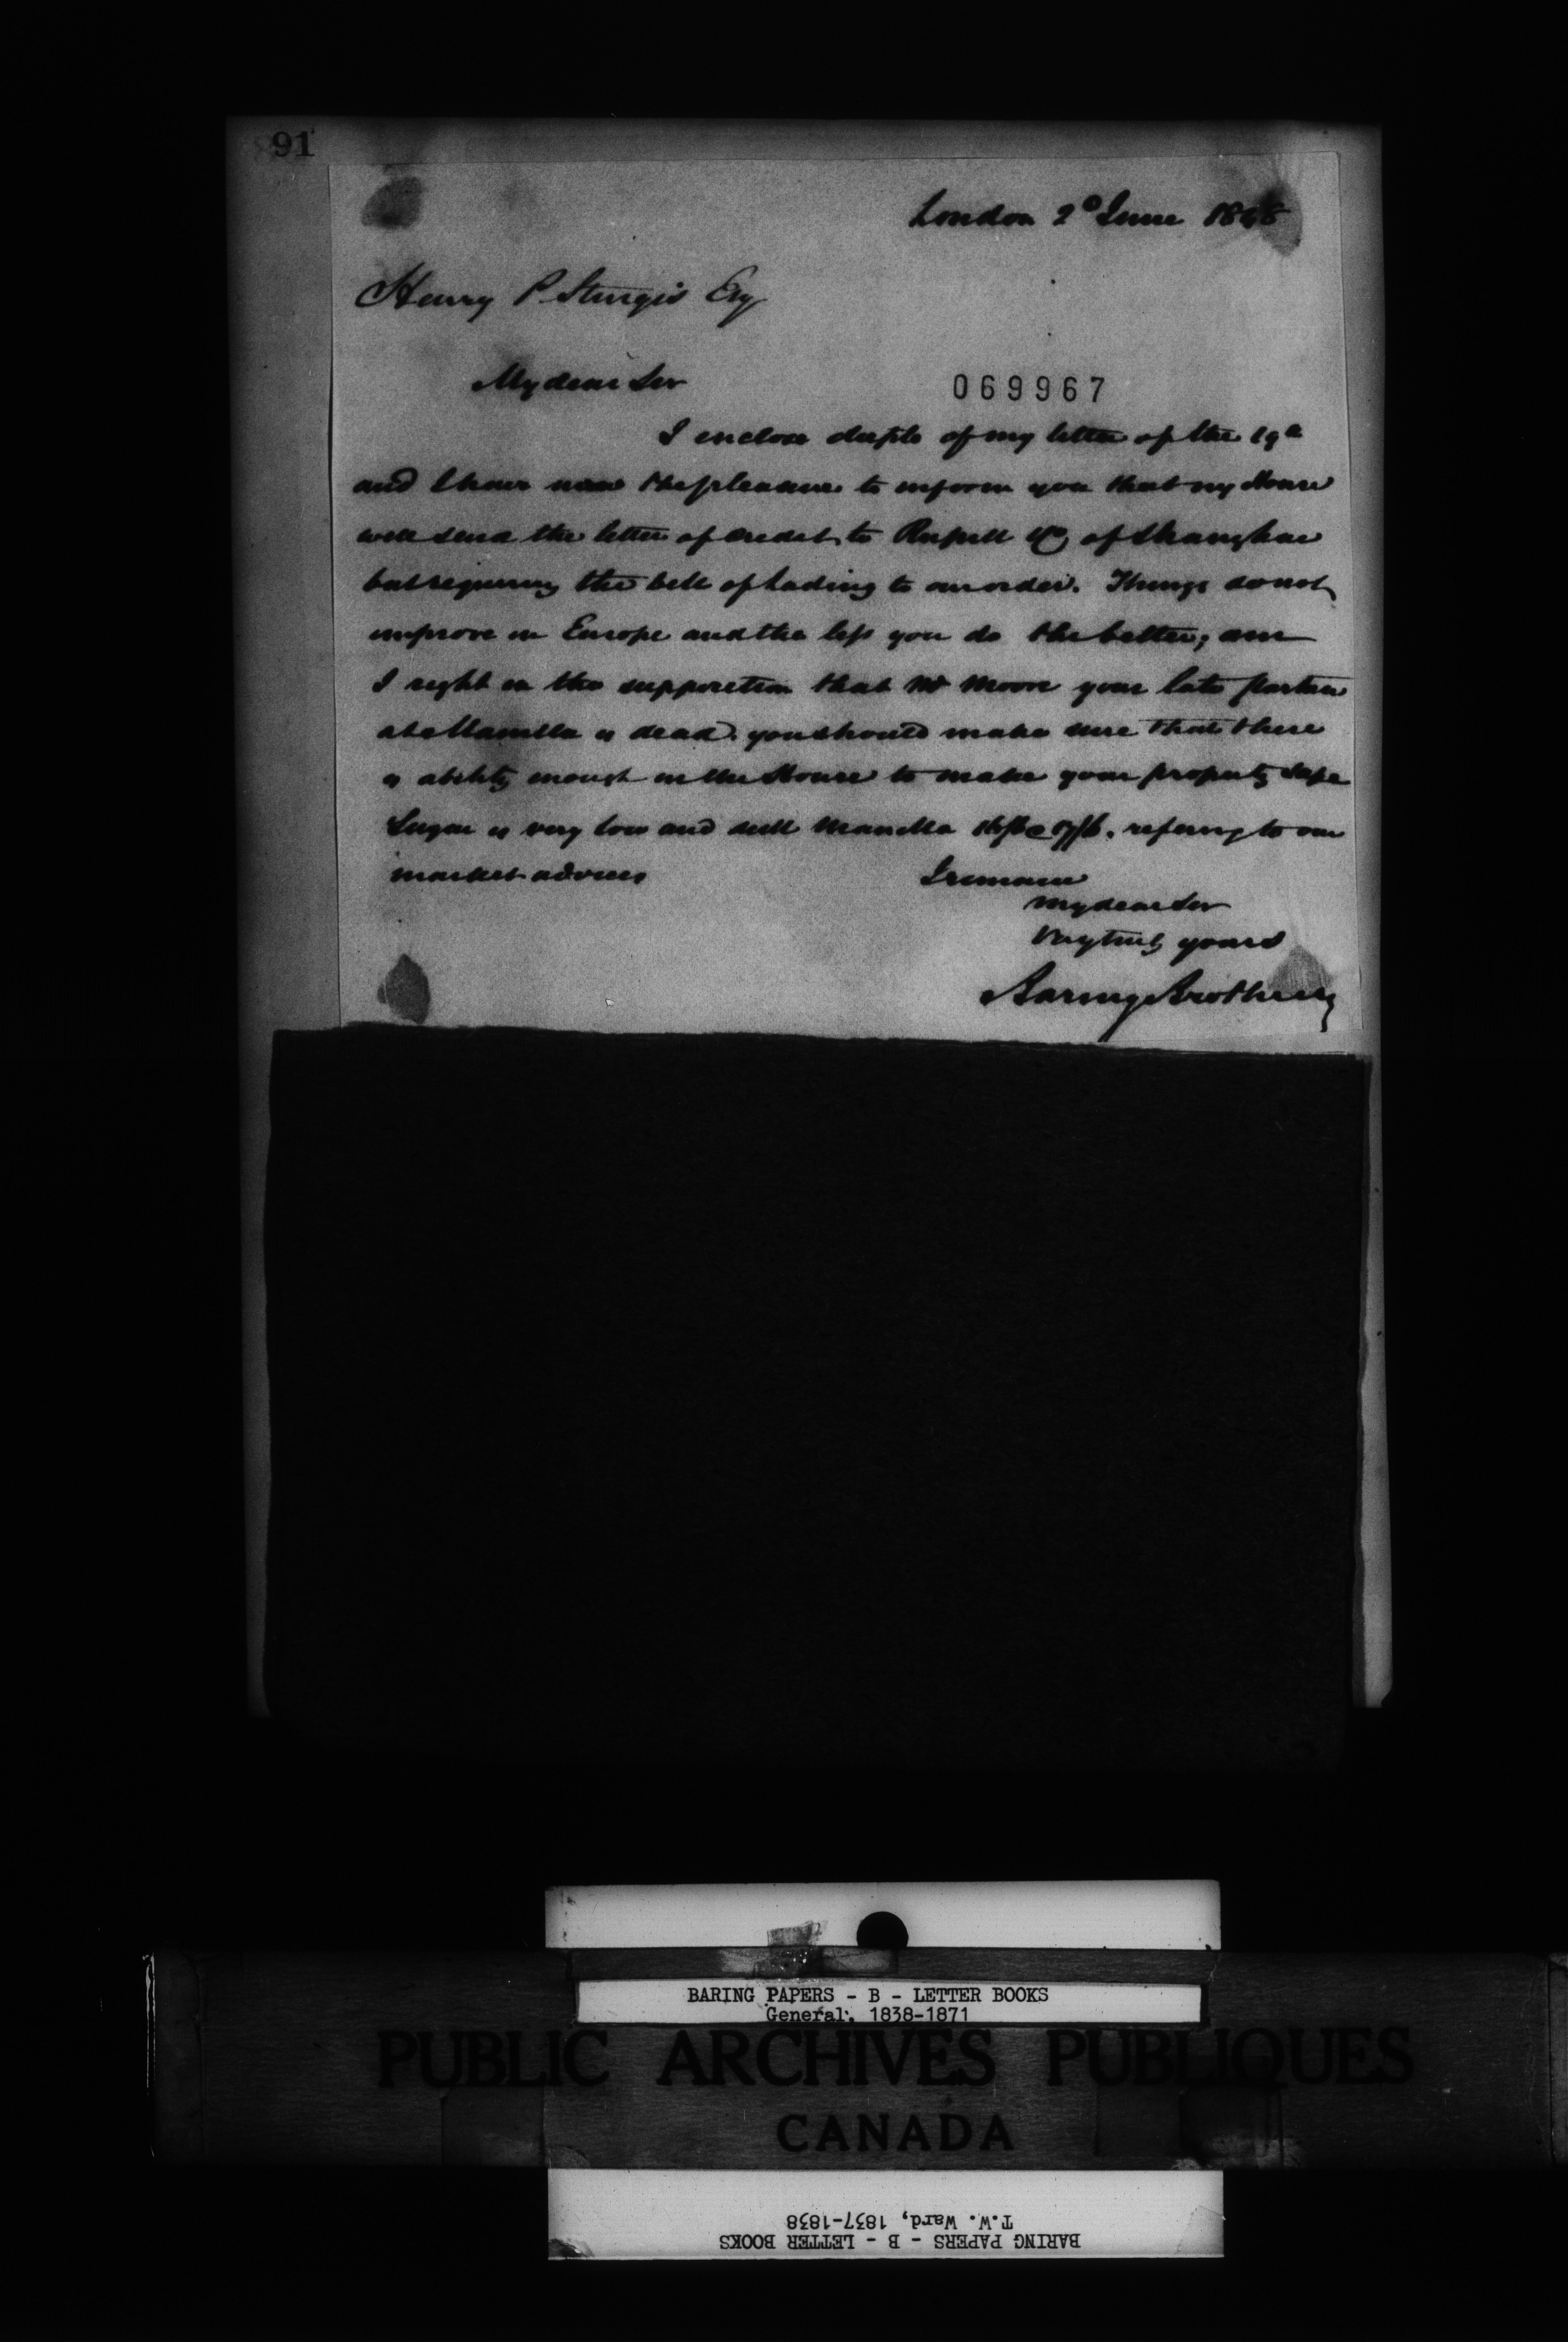 91
London 2° June 1848
Henry P Sturgis Esq
My dear Sir
069967
I enclose duplte of my letter of the 19th
and I have now the pleasure to inform you that my House
will send the letter of credit to Russell & Co of Shanghae
but requiring the bill of Lading to our order. Things do not
improve in Europe and the less you do the better; am
I right in the supposition that Mr Moore your late partner
at Manilla is dead. you should make sure that there
is ability enough in the House to make your property safe
Sugar is very low and dull Manilla 16/6 @ 17/6. referring to our
market advices
I remain
My dear Sir
Very truly yours
Baring Brothers
BARING PAPERS - B - LETTER BOOKS
General, 1838-1871
PUBLIC ARCHIVES PUBLIQUES
CANADA
T.W. Ward, 1837-1838
BARING PAPERS - B - LETTER BOOKS